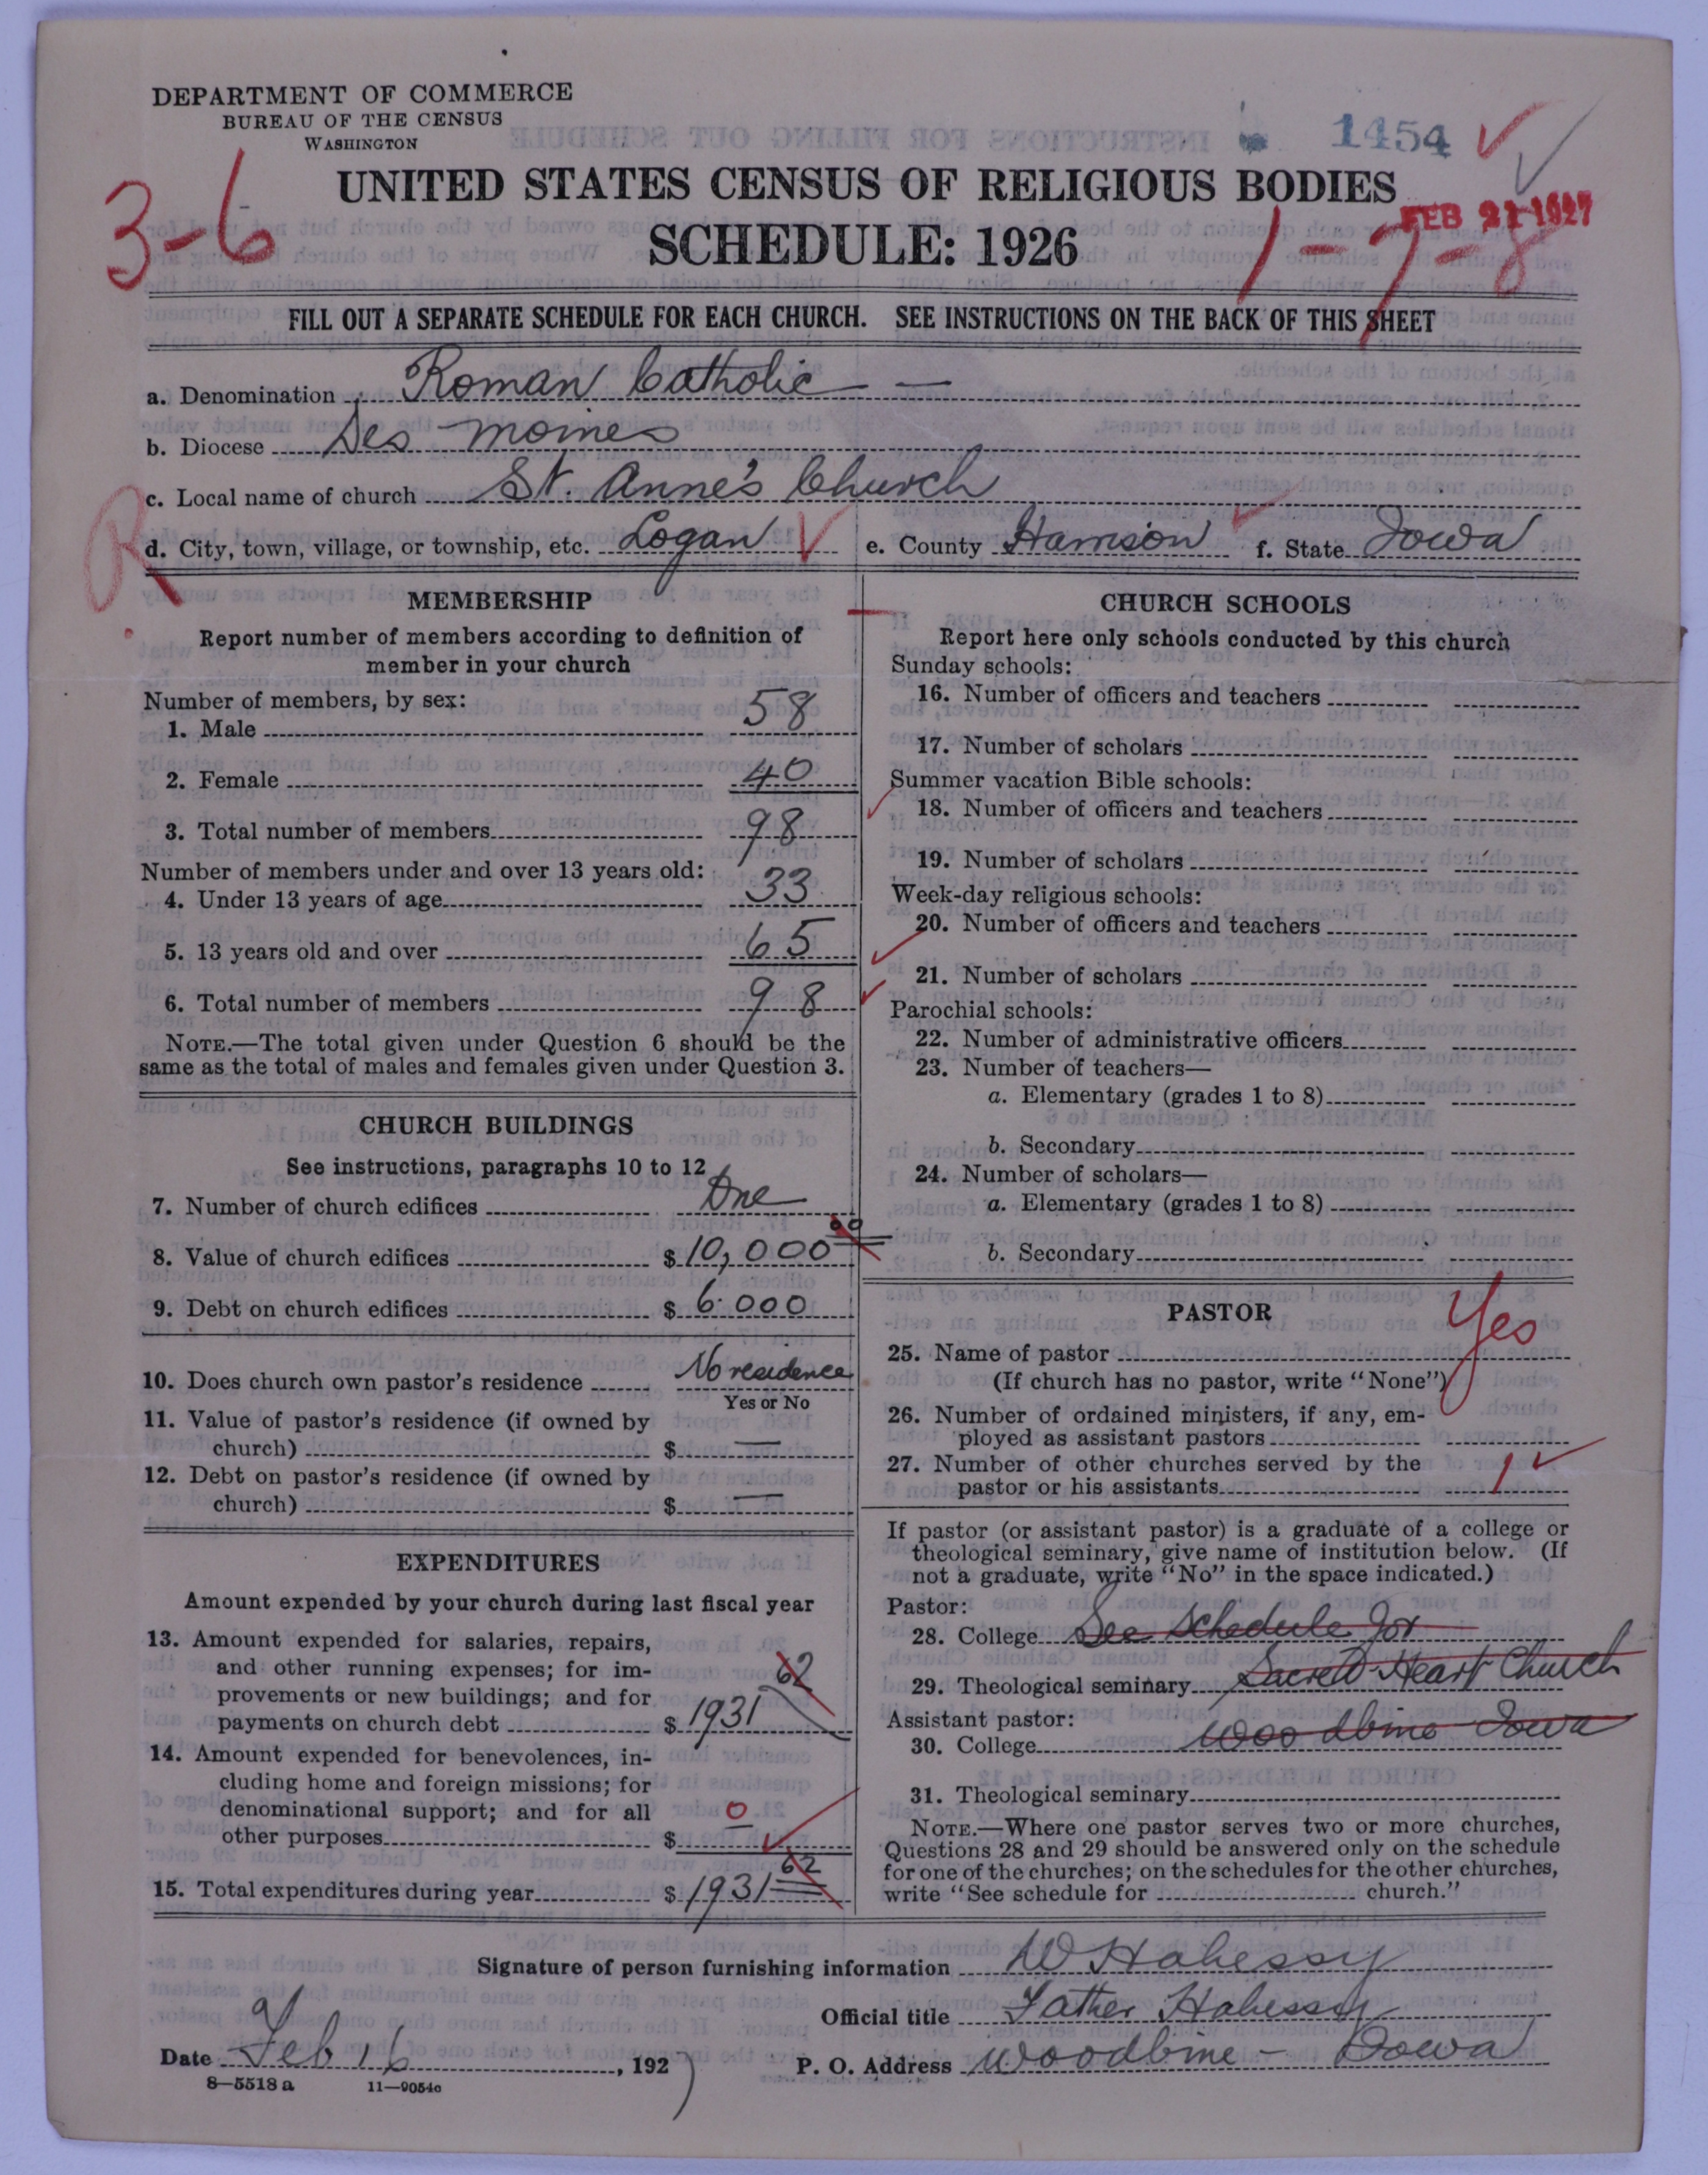 DEPARTMENT OF COMMERCE
BUREAU OF THE CENSUS
WASHINGTON
1454
3-6
UNITED STATES CENSUS OF RELIGIOUS BODIES
FEB 21 1927
SCHEDULE: 1926
1-7-8
FILL OUT A SEPARATE SCHEDULE FOR EACH CHURCH. SEE INSTRUCTIONS ON THE BACK OF THIS SHEET
a. Denomination Roman Catholic
b. Diocese Des Moines
c. Local name of church St. Anne's Church
R
d. City, town, village, or township, etc. Logan e. County Harrison f. State Iowa
MEMBERSHIP
Report number of members according to definition of
member in your church
Number of members, by sex:
1. Male 58
2. Female 40
3. Total number of members 98
Number of members under and over 13 years old:
4. Under 13 years of age 33
5. 13 years old and over 65
6. Total number of members 98
NOTE.—The total given under Question 6 should be the
same as the total of males and females given under Question 3.
CHURCH BUILDINGS
See instructions, paragraphs 10 to 12
7. Number of church edifices One
8. Value of church edifices $ 10,000 00
9. Debt on church edifices $ 6.000
10. Does church own pastor's residence No residence
Yes or No
11. Value of pastor's residence (if owned by
church) $ —
12. Debt on pastor's residence (if owned by
church) $ —
EXPENDITURES
Amount expended by your church during last fiscal year
13. Amount expended for salaries, repairs,
and other running expenses; for im-
provements or new buildings; and for
payments on church debt $ 1931 62
14. Amount expended for benevolences, in-
cluding home and foreign missions; for
denominational support; and for all
other purposes $ 0
15. Total expenditures during year $ 1931 62
CHURCH SCHOOLS
Report here only schools conducted by this church
Sunday schools:
16. Number of officers and teachers
17. Number of scholars
Summer vacation Bible schools:
18. Number of officers and teachers
19. Number of scholars
Week-day religious schools:
20. Number of officers and teachers
21. Number of scholars
Parochial schools:
22. Number of administrative officers
23. Number of teachers—
a. Elementary (grades 1 to 8)
b. Secondary
24. Number of scholars—
a. Elementary (grades 1 to 8)
b. Secondary
PASTOR
25. Name of pastor Yes
(If church has no pastor, write "None")
26. Number of ordained ministers, if any, em-
ployed as assistant pastors
27. Number of other churches served by the
pastor or his assistants 1
If pastor (or assistant pastor) is a graduate of a college or
theological seminary, give name of institution below. (If
not a graduate, write "No" in the space indicated.)
Pastor:
28. College See Schedule for
29. Theological seminary Sacred Heart Church
Assistant pastor:
30. College Woodbine Iowa
31. Theological seminary
NOTE.—Where one pastor serves two or more churches,
Questions 28 and 29 should be answered only on the schedule
for one of the churches; on the schedules for the other churches,
write "See schedule for church."
Signature of person furnishing information W Hahessy
Official title Father Hahessy
Date Feb 16, 1927 P. O. Address Woodbine - Iowa
8—5518 a 11—9054c